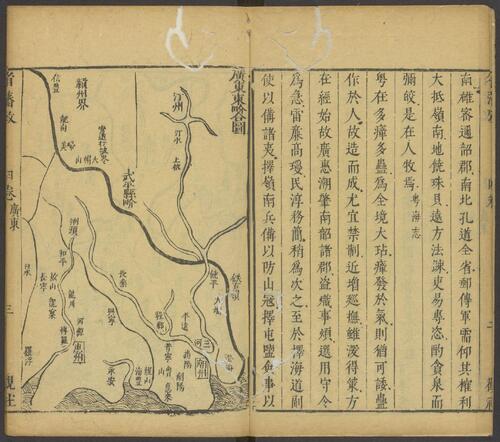 南雄咨通韶郡南北孔道全省郵傳軍需仰其權利
大抵嶺南地饒珠貝遠方法疎吏易專恣酌貪泉而
彌皎是在人牧焉 粵海志
粵在多瘴多蠱為全境大玷瘴發於氣則猶可諉蠱
作於人故造而成尤宜禁制近增巡撫雖浚得策方
在經始故廣惠潮肇南韶諸郡盜熾事煩選用守令
為急雷廉高瓊民淳務簡稍為次之至於擇海道副
使以備諸夷擇嶺南兵備以防山寇擇屯鹽僉事以
廣東東畧各圖
汀州
汀水
上杭
武平縣畍
贛州界
信豐
龍南
大帽山
和平
長寧
龍川
河源
博羅
惠州
羅浮
長樂
興寧
程鄉
平遠
三河
潮州
揭陽
普寧
惠來
海豐
永安
饒平
大埔
省藩攷
四卷 廣東
三